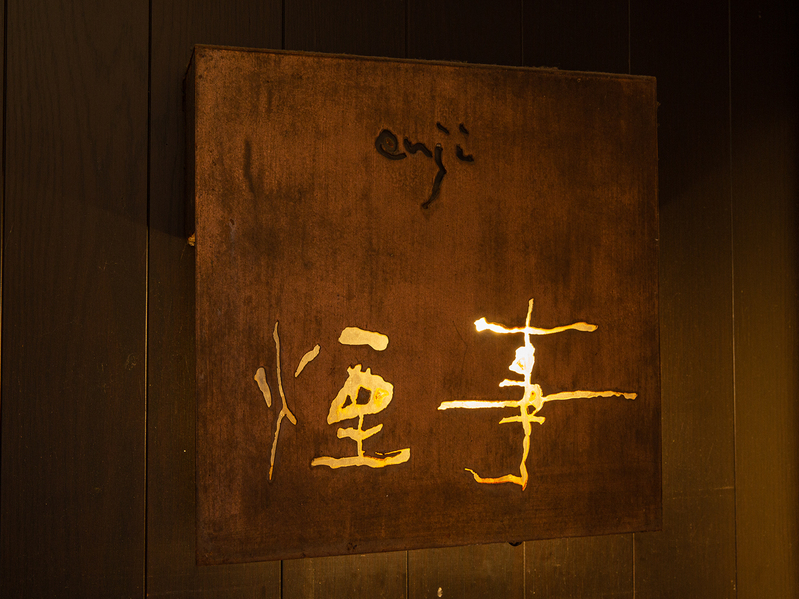 enji
煙事